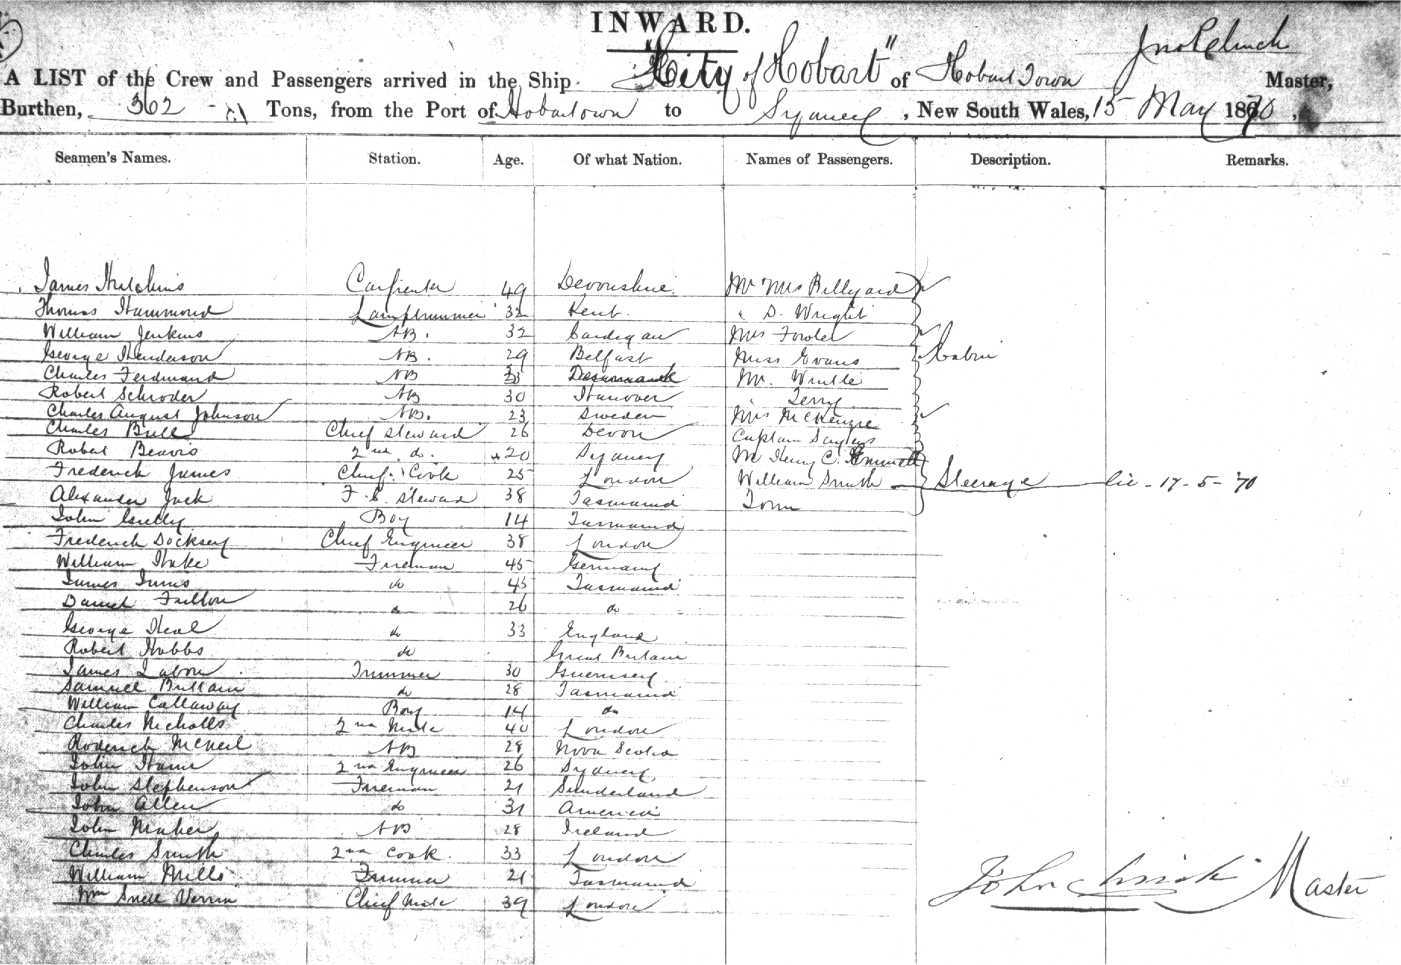 INWARD.
A LIST of the Crew and Passengers arrived in the Ship "City of Hobart" of Hobart Town Master,
Burthen, 362 Tons, from the Port of Hobartown to Sydney, New South Wales, 15 May 1870,
Seamen's Names. Station. Age. Of what Nation. Names of Passengers. Description. Remarks.
James Hutchins Carpenter 49 Devonshire Mr Mrs Billyard
Thomas Hammond Lamptrimmer 32 Kent " D. Wright
William Jenkins AB. 32 Cardigan Mrs Fowler
George Henderson AB. 29 Belfast Miss Evans Cabin
Charles Ferdinand AB Denmark Mr.
Robert Schroder AB 30 Hanover Terry
Charles August Johnson AB. 23 Sweden Mrs McKenzie
Charles Bull Chief Steward 26 Devon Captain Sayers
Robert Beavis 2nd do. 20 Sydney Mr Henry C. Emmett
Frederick James Chief Cook 25 London William Smith Steerage lic - 17 - 5 - '70
Alexander Jack F. C. Steward 38 Tasmania Tom
John Boy 14 Tasmania
Frederick Docksey Chief Engineer 38 London
William Hake Fireman 45 Germany
James Innis do 45 Tasmania
Daniel Fallon do 26 do
George Heal do 33 England
Robert Hobbs do Great Britain
James Trimmer 30 Guernsey
Samuel Brittain do 28 Tasmania
William Callaway Boy 14 do
Charles Nicholls 2nd Mate 40 London
Roderick McNeil AB 28 Nova Scotia
John 2nd Engineer 26 Sydney
John Stephenson Fireman 21 Sunderland
John Allen do 31 America
John Maher AB 28 Ireland
Charles Smith 2nd Cook. 33 London
William Mills Trimmer 21 Tasmania
Wm Snell Chief Mate 39 London
John Clinch Master